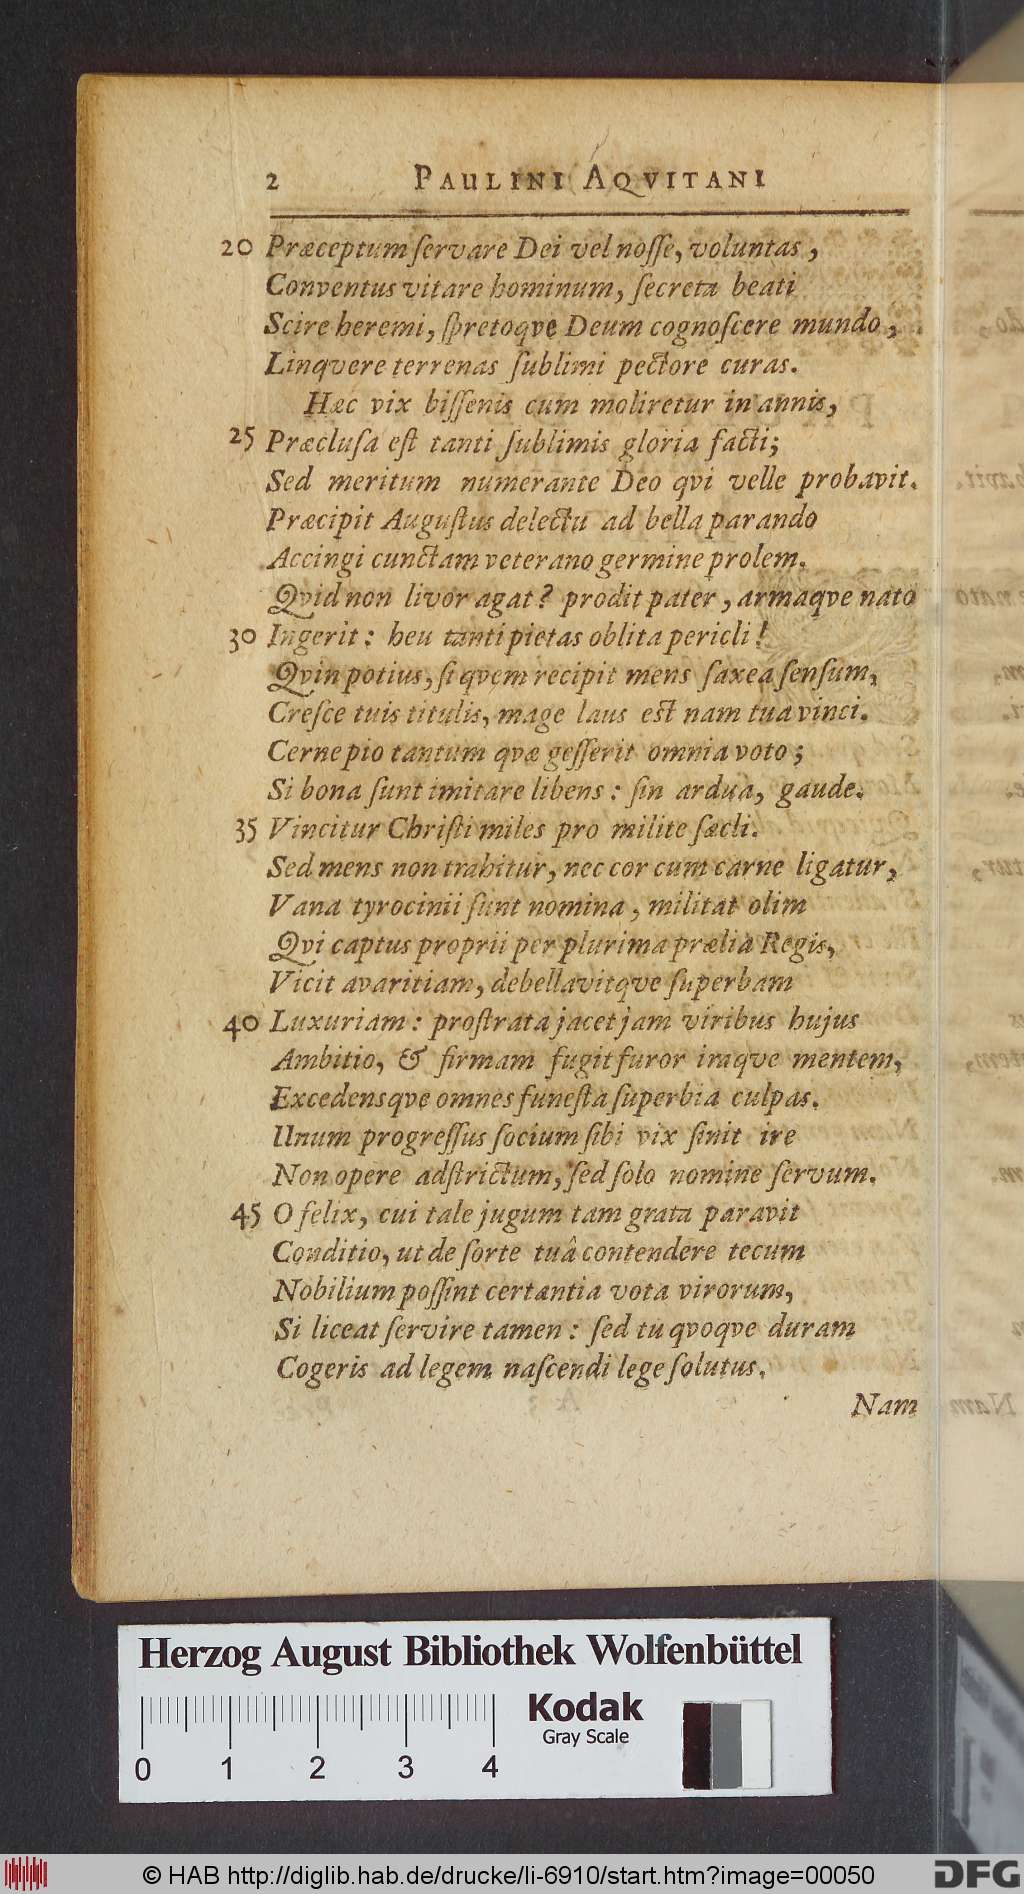 2 PAULINI AQVITANI
20 Præceptum ſervare Dei vel noſſe, voluntas,
Conventus vitare hominum, ſecreta beati
Scire heremi, ſpretoqve Deum cognoſcere mundo,
Linqvere terrenas ſublimi pectore curas.
Hæc vix biſſenis cum moliretur in annis,
25 Præcluſa eſt tanti ſublimis gloria facti;
Sed meritum numerante Deo qvi velle probavit.
Præcipit Auguſtus delectu ad bella parando
Accingi cunctam veterano germine prolem.
Qvid non livor agat? prodit pater, armaqve nato
30 Ingerit: heu tanti pietas oblita pericli!
Qvin potius, ſi qvem recipit mens ſaxea ſenſum,
Creſce tuis titulis, mage laus eſt nam tua vinci.
Cerne pio tantum qvæ geſſerit omnia voto;
Si bona ſunt imitare libens: ſin ardua, gaude.
35 Vincitur Chriſti miles pro milite ſæcli.
Sed mens non trahitur, nec cor cum carne ligatur,
Vana tyrocinii ſunt nomina, militat olim
Qvi captus proprii per plurima prælia Regis,
Vicit avaritiam, debellavitqve ſuperbam
40 Luxuriam: proſtrata jacet jam viribus hujus
Ambitio, & firmam fugit furor iraqve mentem,
Excedensqve omnes funeſta ſuperbia culpas.
Unum progreſſus ſocium ſibi vix ſinit ire
Non opere adſtrictum, ſed ſolo nomine ſervum.
45 O felix, cui tale jugum tam grata paravit
Conditio, ut de ſorte tuâ contendere tecum
Nobilium poſſint certantia vota virorum,
Si liceat ſervire tamen: ſed tu qvoqve duram
Cogeris ad legem naſcendi lege ſolutus.
Nam
Herzog August Bibliothek Wolfenbüttel
Kodak
Gray Scale
0 1 2 3 4
© HAB http://diglib.hab.de/drucke/li-6910/start.htm?image=00050
DFG